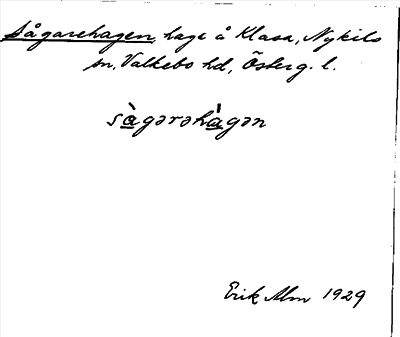 Sågarehagen, hage å Klasa, Nykils
sn, Valkebo hd, Österg. l.
sàgərəhágən
Erik Alm 1929